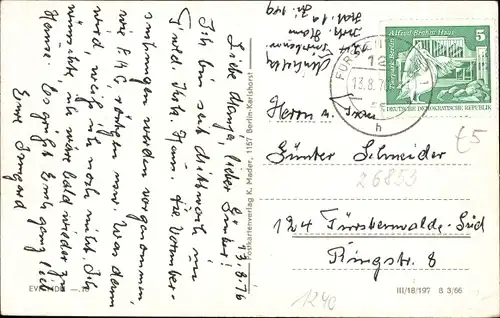 13.8.76
Liebe Monya, lieber Günter!
Ich bin seit Mittwoch im
Kard. Krkh. Hann. Die Vorunter-
suchungen werden vorgenommen,
wie E.K.G., röntgen usw. Was dann
wird weiß ich noch nicht. Ich
wünschte, ich wäre bald wieder zu
Hause. Es grüßt Euch ganz lieb
Eure Irmgard
EVP MDN —.15
Postkartenverlag K. Mader, 1157 Berlin-Karlshorst
Alfred-Brehm-Haus
5
DEUTSCHE DEMOKRATISCHE REPUBLIK
13.8.7
h
Herrn u. Frau
Günter Schneider
26853
£5
124 Fürstenwalde-Süd
Ringstr. 8
1240
III/18/197 B 3/66